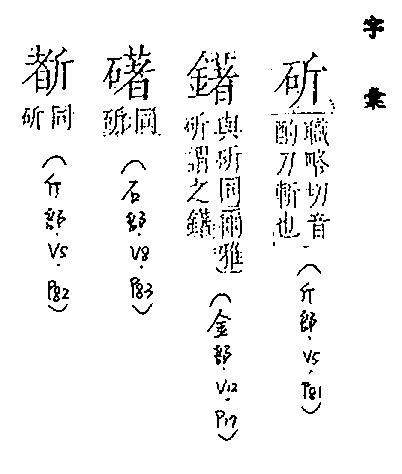 字彙
斫
職略切音
酌刀斬也
(斤部.V5.P81)
鐯
與斫同爾雅
斫謂之鐯
(金部.V12.P17)
同
斫
(石部.V8.P83)
同
斫
(斤部.V5.P82)